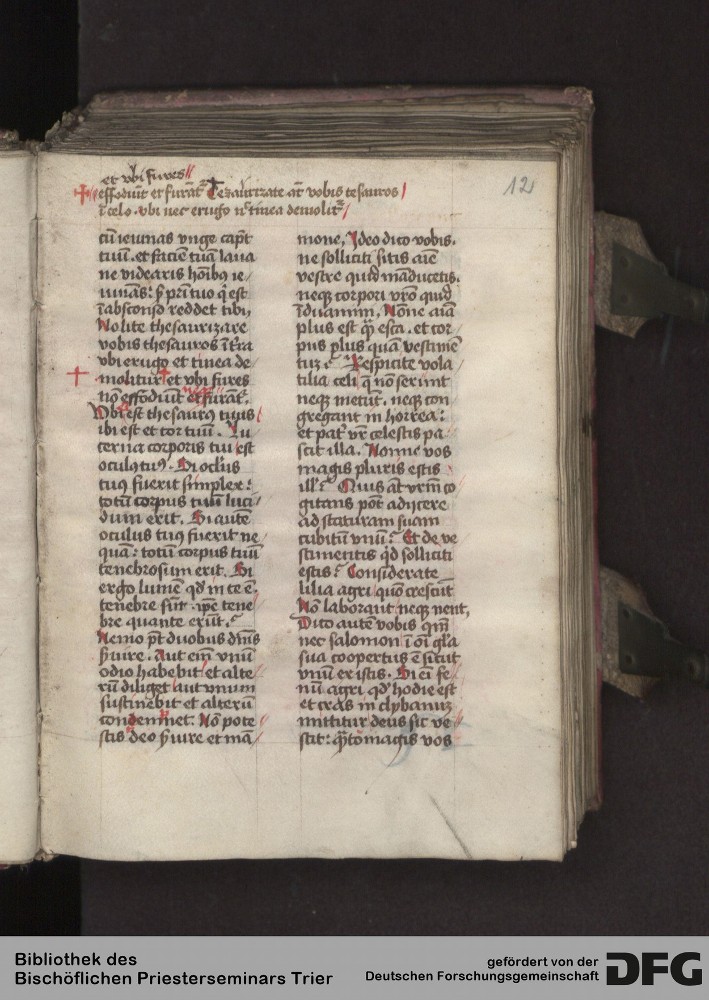 et vbi fures
effodiūt et furāt᷑ Tezaurizate at̄ vobis tesauros
ī celo . vbi nec erugo nec tinea demolit᷑
12
cū ieiunas vnge capt̄
tuū . et faciē tuā laua
ne videaris hōibꝯ ie
iunās : s̄ pr̄i tuo q̄ est
ī absconso reddet tibi
Nolite thesaurizare
vobis thesauros ī t̄ra
vbi erugo et tinea de
molitur et vbi fures
nō effodiūt et furāt᷑.
Vbi est thesaurꝯ tuus
ibi est et cor tuū . Lu
cerna corporis tui est
oculꝯ tuꝯ . Si oclꝰus
tuꝯ fuerit simplex :
totū corpus tuū luci
dum erit . Si autē
oculus tuꝯ fuerit ne
quā : totū corpus tuū
tenebrosum erit . Si
ergo lumē qd̄ in te ē
tenebre sūt . ip̄e tene
bre quante erūt .
Nemo pt̄ duobus dn̄is
s̄uire . Aut em̄ vnū
odio habebit et alte
rū diliget aut vnum
sustinebit et alterū
contemnet . Nō pote
stis deo s̄uire et mā
mone , Ideo dico vobis .
ne solliciti sitis aīe
vestre quid māducetis .
neqꝫ corpori vr̄o quid
īduamini , Nōne aīa
plus est qͣ̄ esca . et cor
pus plus quā vestimē
tū : Respicite vola
tilia celi q̄ nō serunt
neqꝫ metūt . neqꝫ con
gregant in horrea :
et pat᷑ vr̄ celestis pa
scit illa . Nonne vos
magis pluris estis
ill᷑ : Quis at̄ vr̄m co
gitans pōt adijcere
ad staturam suam
cubitū vnū : Et de ve
stimentis qd̄ solliciti
estis : Considerate
lilia agri quō crescūt
Nō laborant neqꝫ nent ,
Dico autē vobis qm̄
nec salomon ī oī gl̄a
sua coopertus ē sicut
vnū ex istis . Si ei̅ fe
nū agri qd̄ hodie est
et cras in clybanū
mittitur deus sic ve
stit : q̄to magis vos
Bibliothek des
Bischöflichen Priesterseminars Trier
gefördert von der
Deutschen Forschungsgemeinschaft
DFG